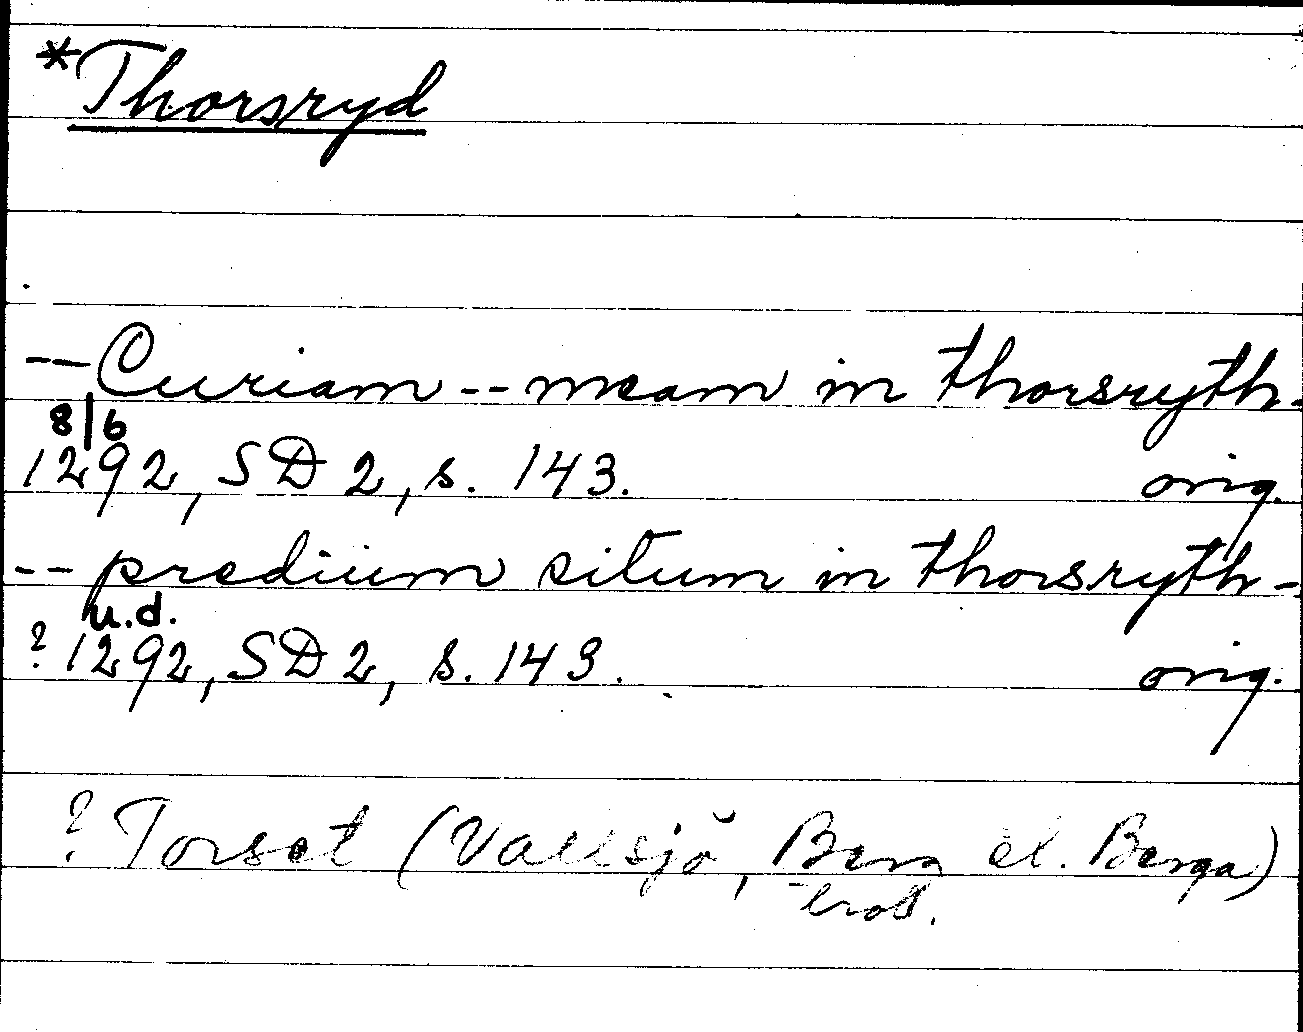 *Thorsryd
-- Curiam -- meam in thorsryth.
8/6
1292, SD 2, s. 143. orig.
-- predium situm in thorsryth -
u.d.
? 1292, SD 2, s. 143. orig.
? Torset (Vallsjö, Berg el. Berga)